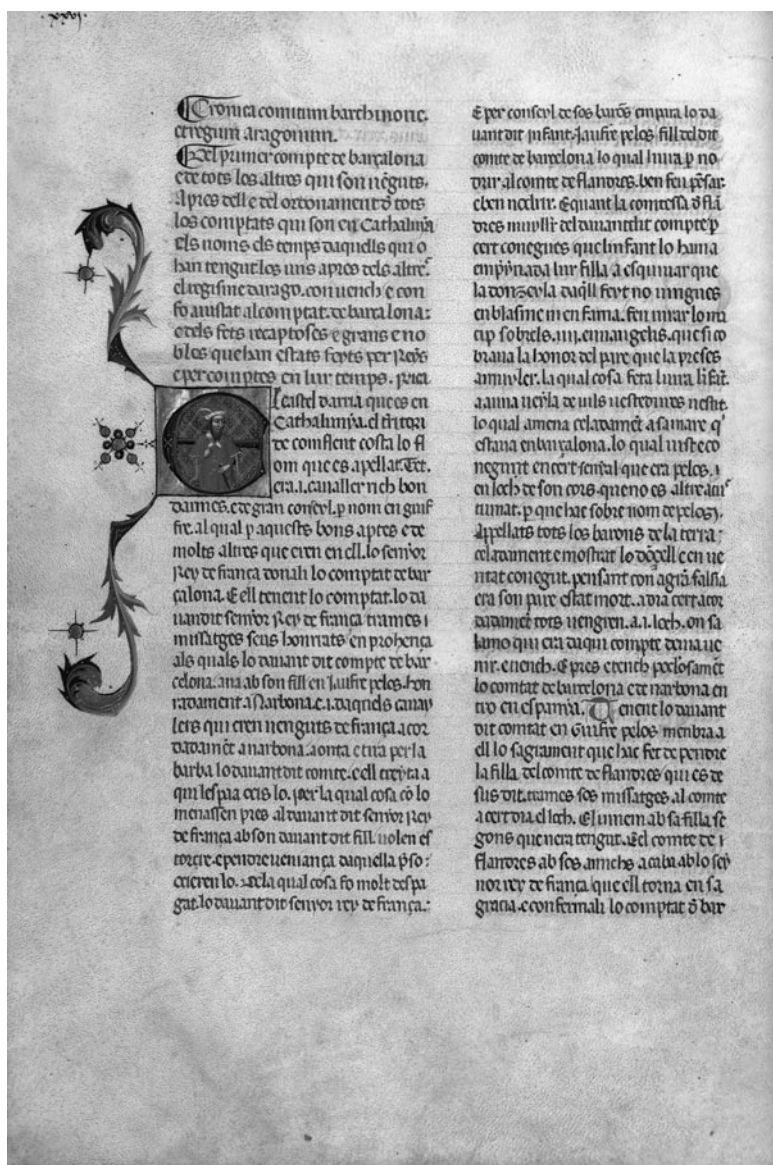 Cronica comitum barchinone.
et regum aragonum.
Del primer compte de barçalona
e de tots los altres qui son uēguts.
Apres dell e del ordonament d̄ tots
los comptats qui son en Cathalunya
els noms els temps daquells qui o
han tengut los uns apres dels altres.
el regisme darago. con uench e con
fo aiustat al comptat. de barcalona:
e dels fets recaptoses e grans e no
bles que han estats feyts per Reys
e per comptes en lur temps.
El castel darria que es en
Cathalunya. el tˀritori
de conflent costa lo fl
om que es apellat. Tet.
era .i. caualler rich bon
darmes. e de gran conseyl. p nom en guif
fre. al qual p aquests bons aptes e de
molts altres que eren en ell. lo senyor
Rey de frança donali lo comptat de bar
çalona. E ell tenent lo comptat. lo da
uandit senyor Rey de frança trames i
missatges seus honrrats en prohença
als quals lo dauant dit compte de bar
celona. ana ab son fill en Jaufre pelos. hon
radament a Narbona. e .i. daquels cauay
lers qui eren uenguts de frança. acor
dadamēt a narbona. aonta e tira per la
barba lo dauant dit comte. e ell treyta
qui lespaa ocis lo. per la qual cosa cō lo
menassen pres al dauant dit senyor Rey
de frança ab son dauant dit fill. uolen es
torçre. e pendre ueniança daquella pso:
ocieren lo. Dela qual cosa fo molt despa
gat. lo dauant dit senyor rey de frança:
E per conseyl de sos barōs empara lo da
uant dit infant. Jaufre pelos fill del dit
comte de barçelona lo qual liura p no
drir. al comte de flandres. ben feu pēsar.
e ben nodrir. E quant la comtessa d̄ flā
dres muyller del dauantdit compte p
cert conegues que linfant lo hauia
emprynada lur filla a esquiuar que
la donzeyla daqll feyt no uingues
en blasme ni en fama. feu iurar lo ma
cip sobrels .iiii. euangelis. que si co
braua la honor del pare que la preses
a muyler. la qual cosa feta liura linfāt.
a una ueyla de uils uestedures uestit.
lo qual amena celadamēt a sa mare q̄
estaua en barçalona. lo qual uist e co
negut en cert senyal que era pelos. i
en loch de son cors. que no es altre acus
tumat. p que hac sobre nom de pelos).
Appellats tots los barons de la terra:
celadament e mostrat lo dōzell e en ue
ritat conegut. pensant con agra falsia
era son pare estat mort. a dia cert acor
dadamēt tots uengren. a .i. loch. on sa
lamo qui era daqui compte deuia ue
nir. e uench. E pres e tench poderosamēt
lo comtat de barcelona e de narbona en
tro en espanya. Tenent lo dauant
dit comtat en Guifre pelos menbra a
ell lo sagrament que hac fet de pendre
la filla del comte de flandres qui es de
sus dit. trames sos missatges. al comte
a cert dia el loch. Ell uinem ab sa filla se
gons que nera tengut. Del comte de
flandres ab sos amichs acaba ab lo sey
nor rey de frança que ell torna en sa
gracia. e confermali lo comptat d̄ bar